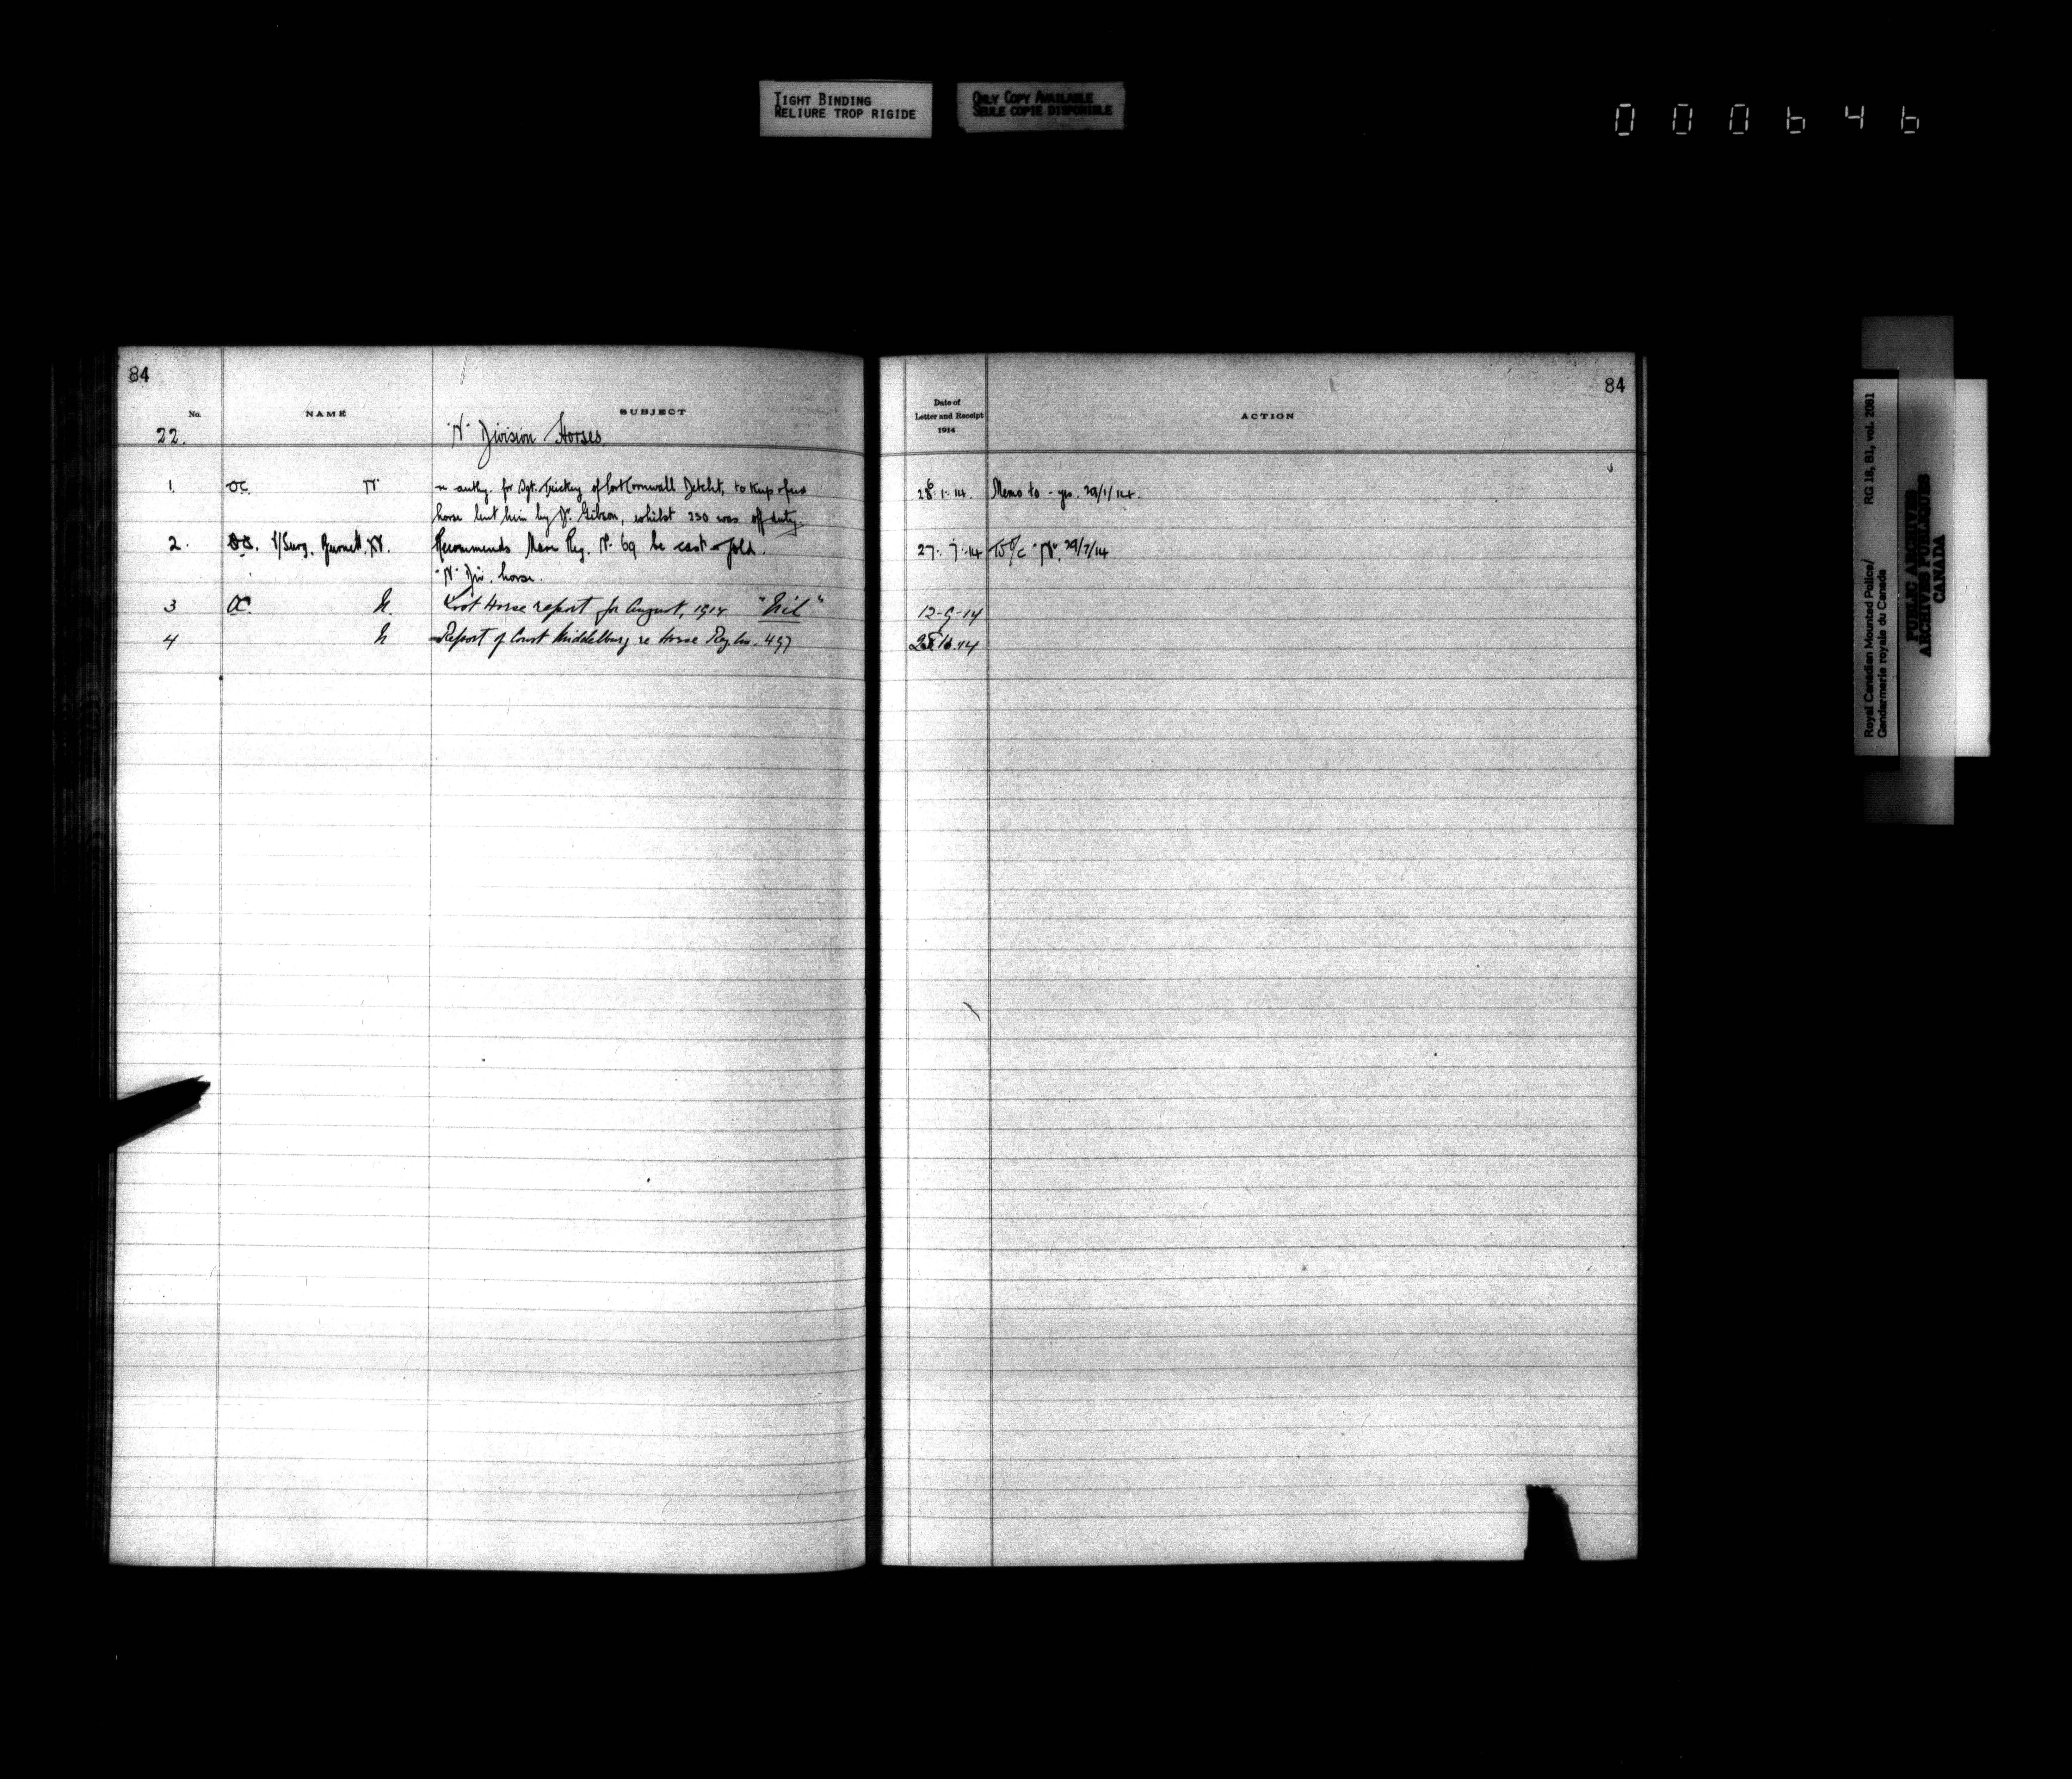 TIGHT BINDING
RELIURE TROP RIGIDE
ONLY COPY AVAILABLE
SEULE COPIE DISPONIBLE
000646
84
No. NAME SUBJECT
22. "N" Division Horses
1. OC. N re authy. for Sgt. Trickey of Fort Cornwall Detcht, to keep &
horse lent him by Dr. Gibson, whilst 230 was off duty.
2. V/Surg. Burnett. Recommends Mare Reg. No. 69 be cast & sold.
"N" Div. horse.
3 OC. N. Lost Horse report for August, 1914 "Nil"
4 N Report of Const Middelburg re Horse Reg. No. 497
84
Date of
Letter and Receipt
1914
ACTION
28.1.14. Memo to - yes. 29/1/14.
27.7.14 To O/C "N". 29/7/14
12-9-14
14
Royal Canadian Mounted Police/
Gendarmerie royale du Canada
RG 18, B1, vol. 2081
PUBLIC ARCHIVES
ARCHIVES PUBLIQUES
CANADA